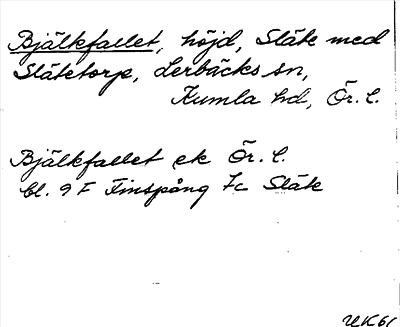 Bjälkfallet, höjd, Släte med
Slätetorp, Lerbäcks sn,
Kumla hd, Ör. l.
Bjälkfallet ek Ör. l.
bl. 9 F Finspång 7c Släte
UK 61